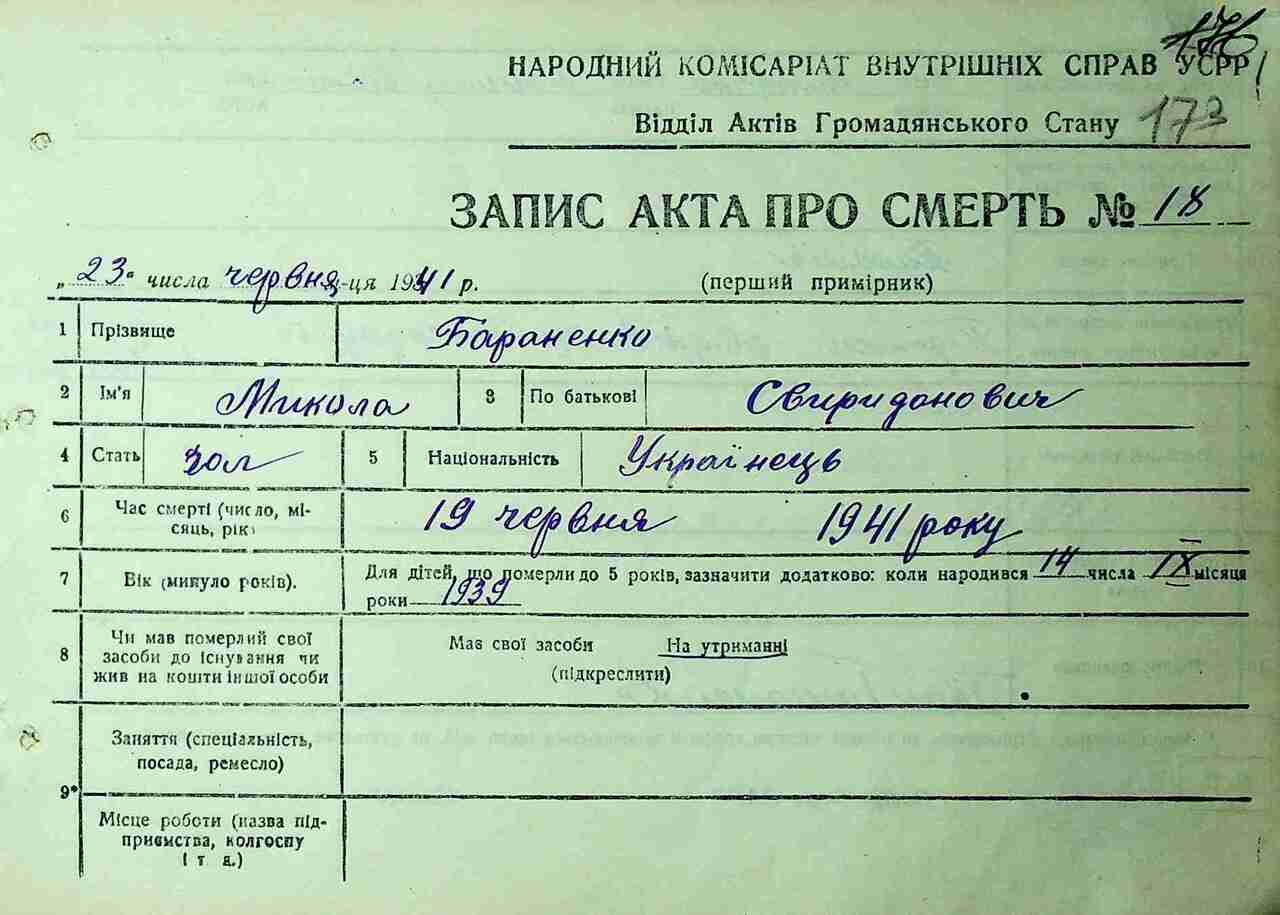 176
НАРОДНИЙ КОМІСАРІАТ ВНУТРІШНІХ СПРАВ УСРР
Відділ Актів Громадянського Стану 173
ЗАПИС АКТА ПРО СМЕРТЬ № 18
„23" числа червня м-ця 1941 р. (перший примірник)
1 Прізвище Бараненко
2 Ім'я Микола 3 По батькові Свиридонович
4 Стать чол 5 Національність Українець
6 Час смерті (число, мі-
сяць, рік) 19 червня 1941 року
7 Вік (минуло років). Для дітей, що померли до 5 років, зазначити додатково: коли народився 14 числа IX місяця
роки 1939
8 Чи мав померлий свої
засоби до існування чи
жив на кошти іншої особи
Мав свої засоби На утриманні
(підкреслити)
9* Заняття (спеціальність,
посада, ремесло)
Місце роботи (назва під-
приємства, колгоспу
і т д.)